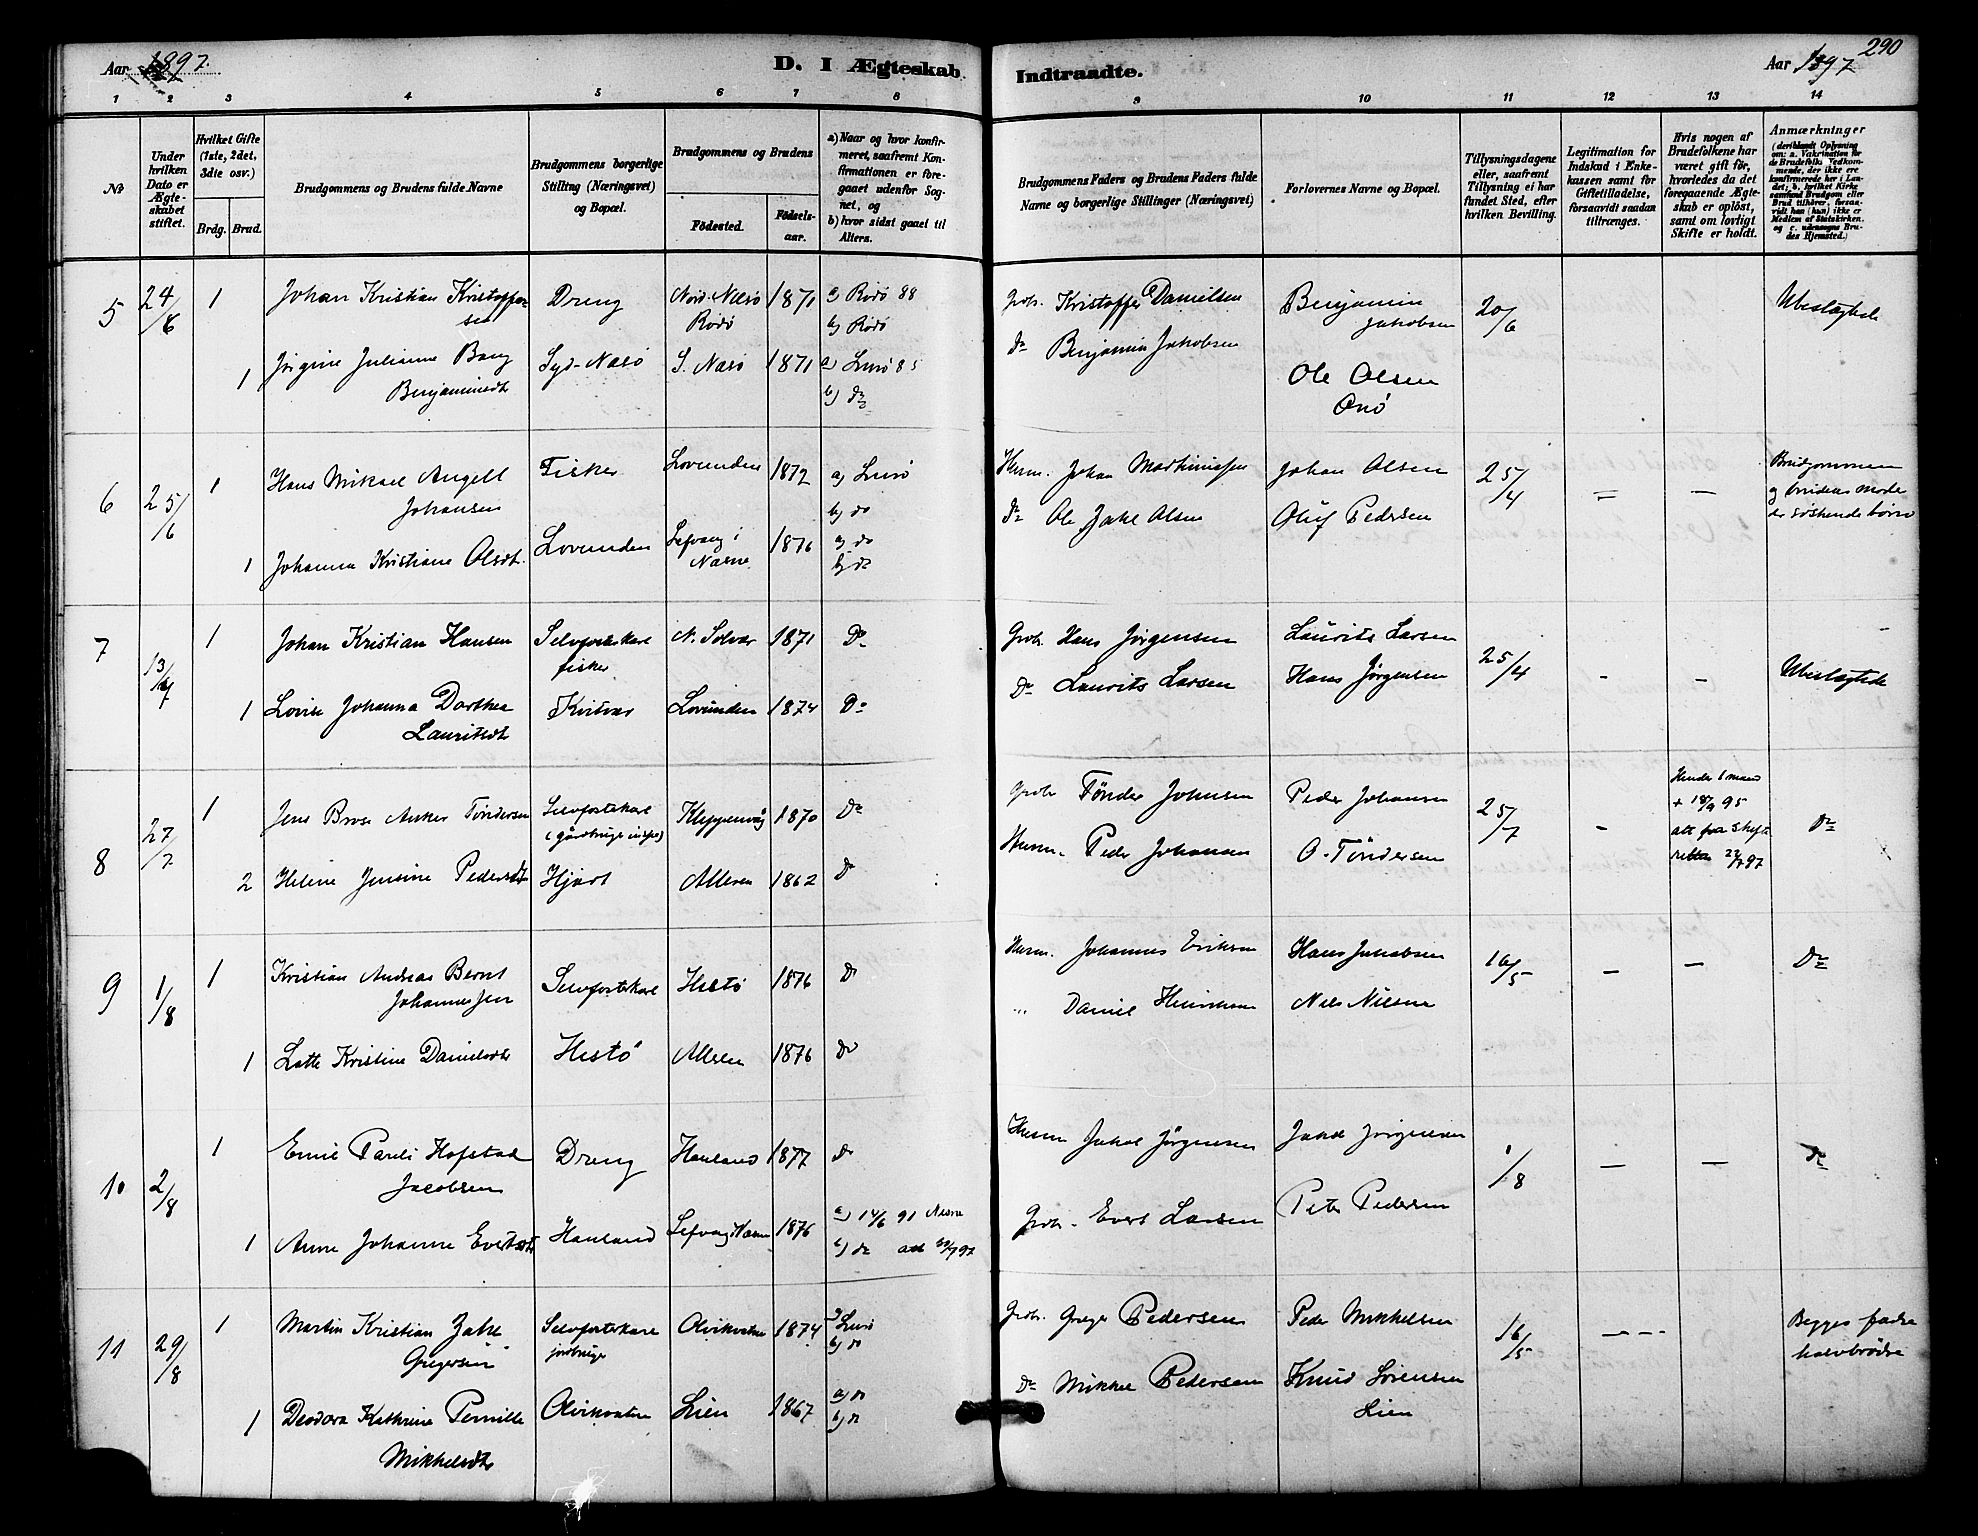 Aar 1897. D. I Ægteskab Indtraadte. Aar 1897 290
1 2 3 4 5 6 7 8 9 10 11 12 13 14
No
Under hvilken Dato er Ægte-skabet stiftet.
Hvilket Gifte (1ste, 2det, 3die osv.)
Brdg. Brud.
Brudgommens og Brudens fulde Navne
Brudgommens borgerlige Stilling (Næringsvei) og Bopæl.
Brudgommens og Brudens
Födested.
Födsels-aar.
a) Naar og hvor konfir-
meret, saafremt Kon-
firmationen er fore-
gaaet udenfor Sog-
net, og
b) hvor sidst gaaet til
Alters.
Brudgommens Faders og Brudens Faders fulde
Navne og borgerlige Stillinger (Næringsvei)
Forlovernes Navne og Bopæl.
Tillysningsdagene
eller, saafremt
Tillysning ei har
fundet Sted, efter
hvilken Bevilling.
Legitimation for
Indskud i Enke-
kassen samt for
Giftetilladelse,
forsaavidt saadan
tiltrænges.
Hvis nogen af
Brudefolkene har
været gift för,
hvorledes da det
foregaaende Ægte-
skab er oplöst,
samt om lovligt
Skifte er holdt.
Anmærkninger
(deriblandt Oplysning
om: a. Vakcination for
de Brudefolks Vedkom-
mende, der ikke ere
konfirmerede her i Lan-
det; b. hvilket Kirke
samfund Brudgom eller
Brud tilhörer, forsaa-
vidt han (hun) ikke er
Medlem af Statskirken.
og c. udensogns Bru-
des Hjemsted.)
5 24/6 1 Johan Kristian Kristoffer-
sen Dreng Nord-Næsö
Rödö 1871 a) Rödö 88
b) Rödö Grdb. Kristoffer Danielsen Benjamin
Jakobsen 20/6 Ubeslægtede
1 Jörgine Julianne Bang
Benjaminsdt Syd-Næsö S. Næsö 1871 a) Lurö 85
b) do Do Benjamin Jakobsen Ole Olsen
Onö
6 25/6 1 Hans Mikael Angell
Johansen Fisker Lovunden 1872 a) Lurö
b) do Husm. Johan Martinussen Johan Olsen 25/4 = — Brudgommen
og brudens moder
er söskendebörn
1 Johanna Kristiane Olsdt. Lovunden Selvaag i
Næsne 1876 a) do
b) do Do Ole Jakob Olsen Oluf Pedersen
7 13/7 1 Johan Kristian Hansen Selvforsterkarl
fisker N. Solvær 1871 Do Grdb. Hans Jörgensen Laurits Larsen 25/4 - - Ubeslægtede
1 Lovise Johanna Dorthea
Lauritsdt Kvitvær Lovunden 1874 Do Do Laurits Larsen Hans Jörgensen
8 27/7 1 Jens Brose Anker Töndersen Selvforsterkarl Kleppenvåg 1870 Do Grdb Tönder Johnsen Peder Johansen 25/7 - Hendes 1 mand
+ 18/9 95
att fra skifte
retten 22/7 97 Do
2 Helene Jensine Pedersdt Hjart Alleren 1862 Do Husm. Peder Johansen O. Töndersen
9 1/8 1 Kristian Andreas Bernt
Johannessen Selvforsterkarl Hestö 1876 Do Husm. Johannes Eriksen Hans Jakobsen 16/5 — — Do
1 Lotte Kristine Danielsdt Hestö Alleren 1876 do " Daniel Henriksen Nils Nilsen
10 2/8 1 Emil Pauli Hofstad
Jacobsen Dreng Hauland 1877 do Husm Jakob Jörgensen Jakob Jörgensen 1/8 — — Do
1 Anne Johanne Evertsdt Hauland 1876 a) 14/6 91 Næsne
b) do att 30/7 97 Grdb. Evert Larsen Peter Pedersen
11 29/8 1 Martin Kristian Jakob
Gregersen Selvforsterkarl
jordbruger Olvikvatne 1874 a) Lurö
b) do Grdb. Greger Pedersen Peder Mikkelsen 16/5 — — Begges fædre
halvbrödre
1 Deodora Kathrine Pernille
Mikkelsdt Olvikvatne Lien 1867 a) do
b) do Do Mikkel Pedersen Knud Sörensen
Lien